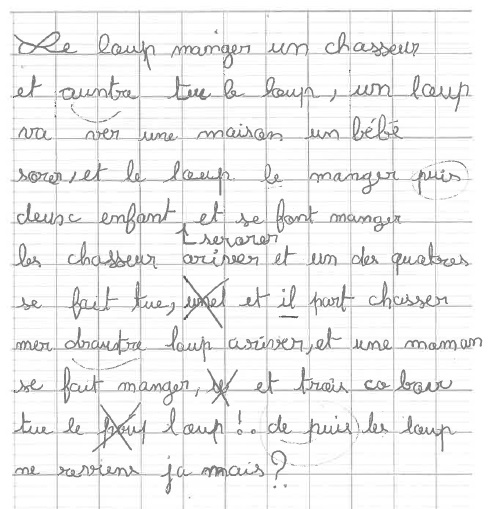 Le loup manger un chasseur
et auntre tue le loup, un loup
va ver une maison un bébé
sorer, et le loup le manger puis
deusc enfant et se font manger
serarer
les chasseur ariver et un des quatres
se fait tue, unel et il part chasser
mer drautre loup ariver, et une maman
se fait manger, et trois co bou
tue le loup loup !.. de puis les loup
ne reviens ja mais ?